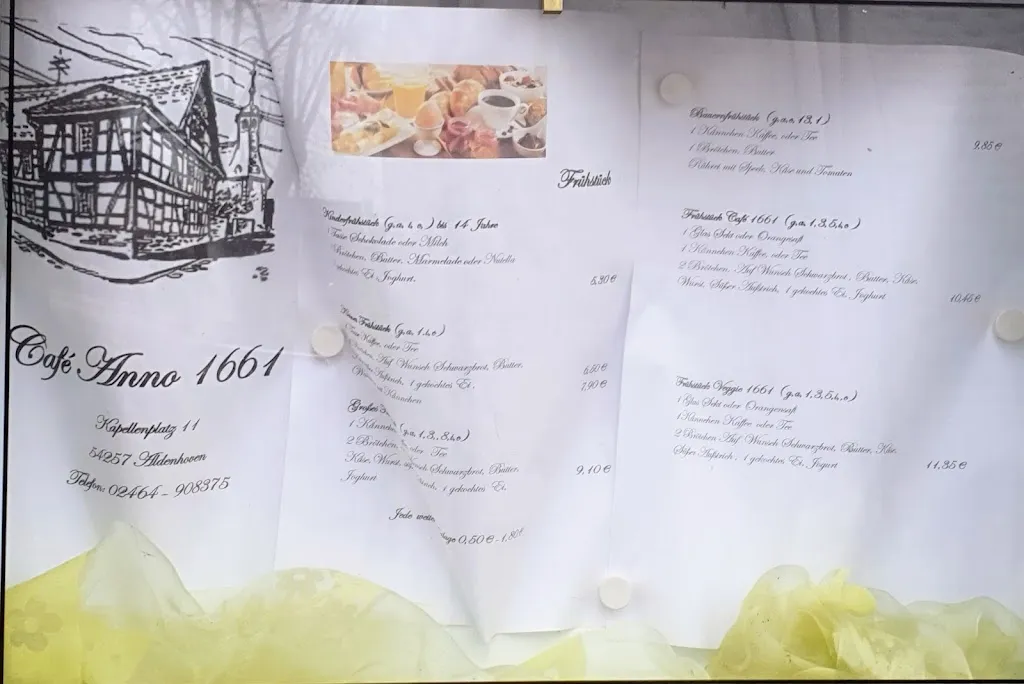 Café Anno 1661
Kapellenplatz 11
54257 Aldenhoven
Telefon: 02464 - 908375
Frühstück
Kinderfrühstück (g,a, b, c, ) bis 14 Jahre
1 Tasse Schokolade oder Milch
Brötchen, Butter, Marmelade oder Nutella
gekochtes Ei, Joghurt.
5,30 €
Frühstück (g,a, 1,
Tasse Kaffee, oder Tee
Auf Wunsch Schwarzbrot, Butter,
Aufstrich, 1 gekochtes Ei,
6,60 €
Kännchen
7,90 €
Großes
(g,a, 1,3,
1 Kännchen
oder Tee
2 Brötchen,
Schwarzbrot, Butter,
Käse, Wurst,
1 gekochtes Ei,
Joghurt
9,10 €
Jede weite
0,50 € - 1,80 €
Bauernfrühstück (g,a,c, 13,1)
1 Kännchen Kaffee, oder Tee
1 Brötchen, Butter
Rührei mit Speck, Käse und Tomaten
9,85 €
Frühstück Café 1661 (g,a, 1,3,5,
1 Glas Sekt oder Orangensaft
1 Kännchen Kaffee, oder Tee
2 Brötchen, Auf Wunsch Schwarzbrot, Butter, Käse,
Wurst, Süßer Aufstrich, 1 gekochtes Ei, Joghurt
10,45 €
Frühstück Veggie 1661 (g,a, 1,3,5,
1 Glas Sekt oder Orangensaft
1 Kännchen Kaffee oder Tee
2 Brötchen Auf Wunsch Schwarzbrot, Butter, Käse,
Süßer Aufstrich, 1 gekochtes Ei, Jogurt
11,35 €